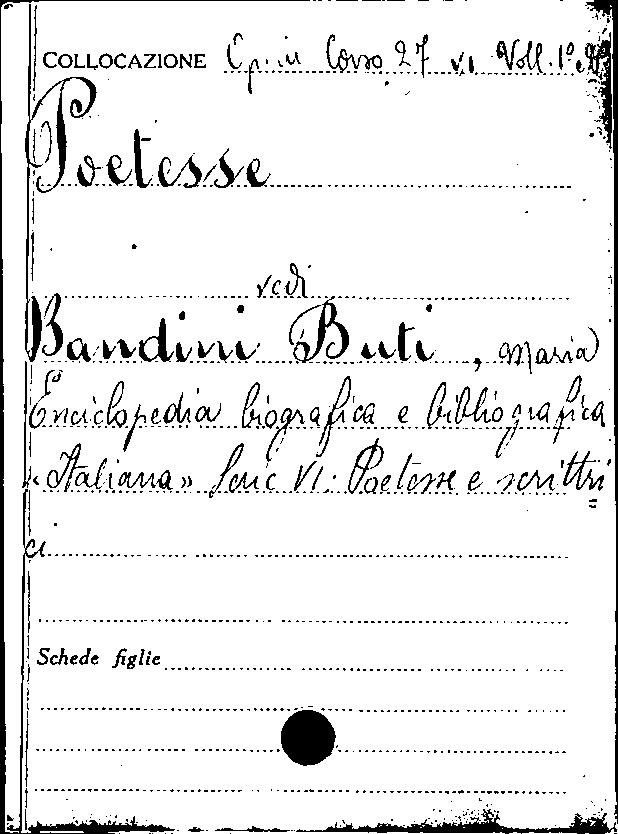 COLLOCAZIONE Op. in Corso 27 VI Voll. 1º e 2º
Poetesse
vedi
Bandini Buti, Maria
Enciclopedia biografica e bibliografica
«Italiana» Serie VI: Poetesse e scrittri=
ci
Schede figlie